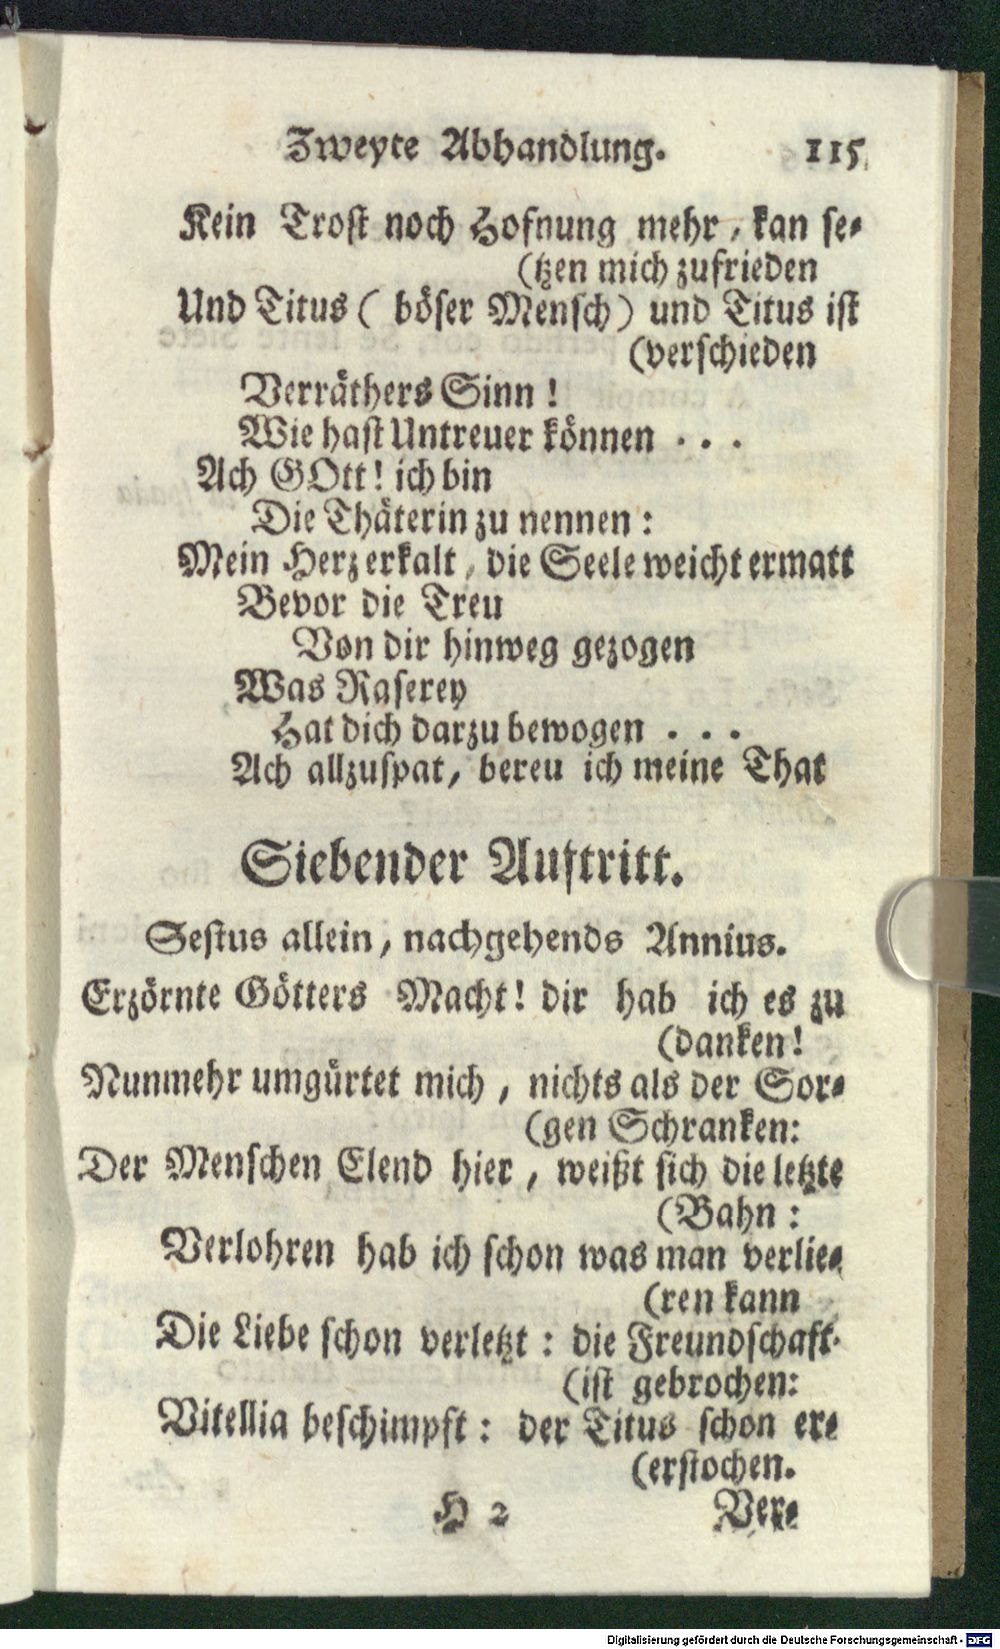 Zweyte Abhandlung. 115
Kein Trost noch Hofnung mehr, kan se-
(tzen mich zufrieden
Und Titus ( böser Mensch) und Titus ist
(verschieden
Verräthers Sinn !
Wie hast Untreuer können . . .
Ach GOtt! ich bin
Die Thäterin zu nennen :
Mein Herz erkalt, die Seele weicht ermatt
Bevor die Treu
Von dir hinweg gezogen
Was Raserey
Hat dich darzu bewogen . . .
Ach allzuspat, bereu ich meine That
Siebender Auftritt.
Sestus allein, nachgehends Annius.
Erzörnte Götters Macht! dir hab ich es zu
(danken!
Nunmehr umgürtet mich , nichts als der Sor-
(gen Schranken:
Der Menschen Elend hier , weißt sich die letzte
(Bahn :
Verlohren hab ich schon was man verlie-
(ren kann
Die Liebe schon verletzt : die Freundschaft
(ist gebrochen:
Vitellia beschimpft : der Titus schon er-
(erstochen.
H 2 Ver-
Digitalisierung gefördert durch die Deutsche Forschungsgemeinschaft - DFG